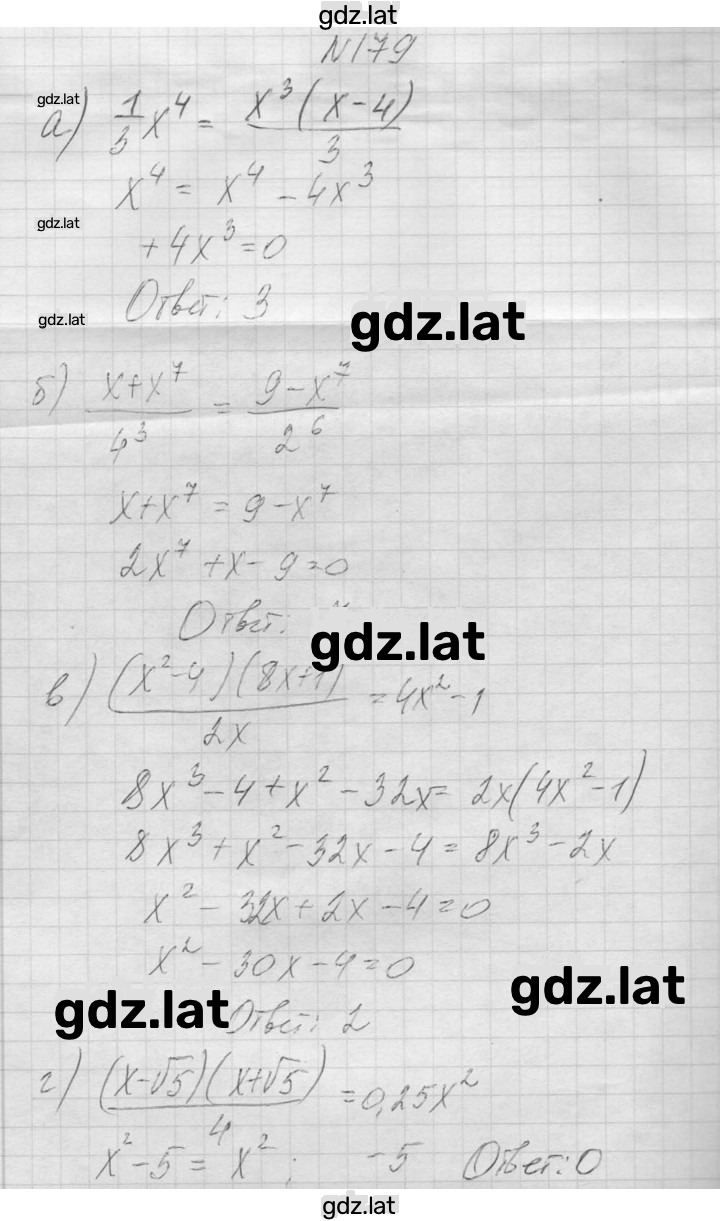 gdz.lat
N179
gdz.lat
а) 1/3 x⁴ = x³(x-4)/3
x⁴ = x⁴ - 4x³
gdz.lat
+4x³=0
Ответ: 3
gdz.lat
gdz.lat
б) x+x⁷/4³ = 9-x⁷/2⁶
x+x⁷ = 9-x⁷
2x⁷+x-9=0
Ответ:
gdz.lat
в) (x²-4)(8x+1)/2x = 4x²-1
8x³-4+x²-32x= 2x(4x²-1)
8x³+x²-32x-4=8x³-2x
x²-32x+2x-4=0
x²-30x-4=0
gdz.lat
gdz.lat
Ответ: 2
г) (x-√5)(x+√5)/4 =0,25x²
x²-5= x²; -5 Ответ: 0
gdz.lat